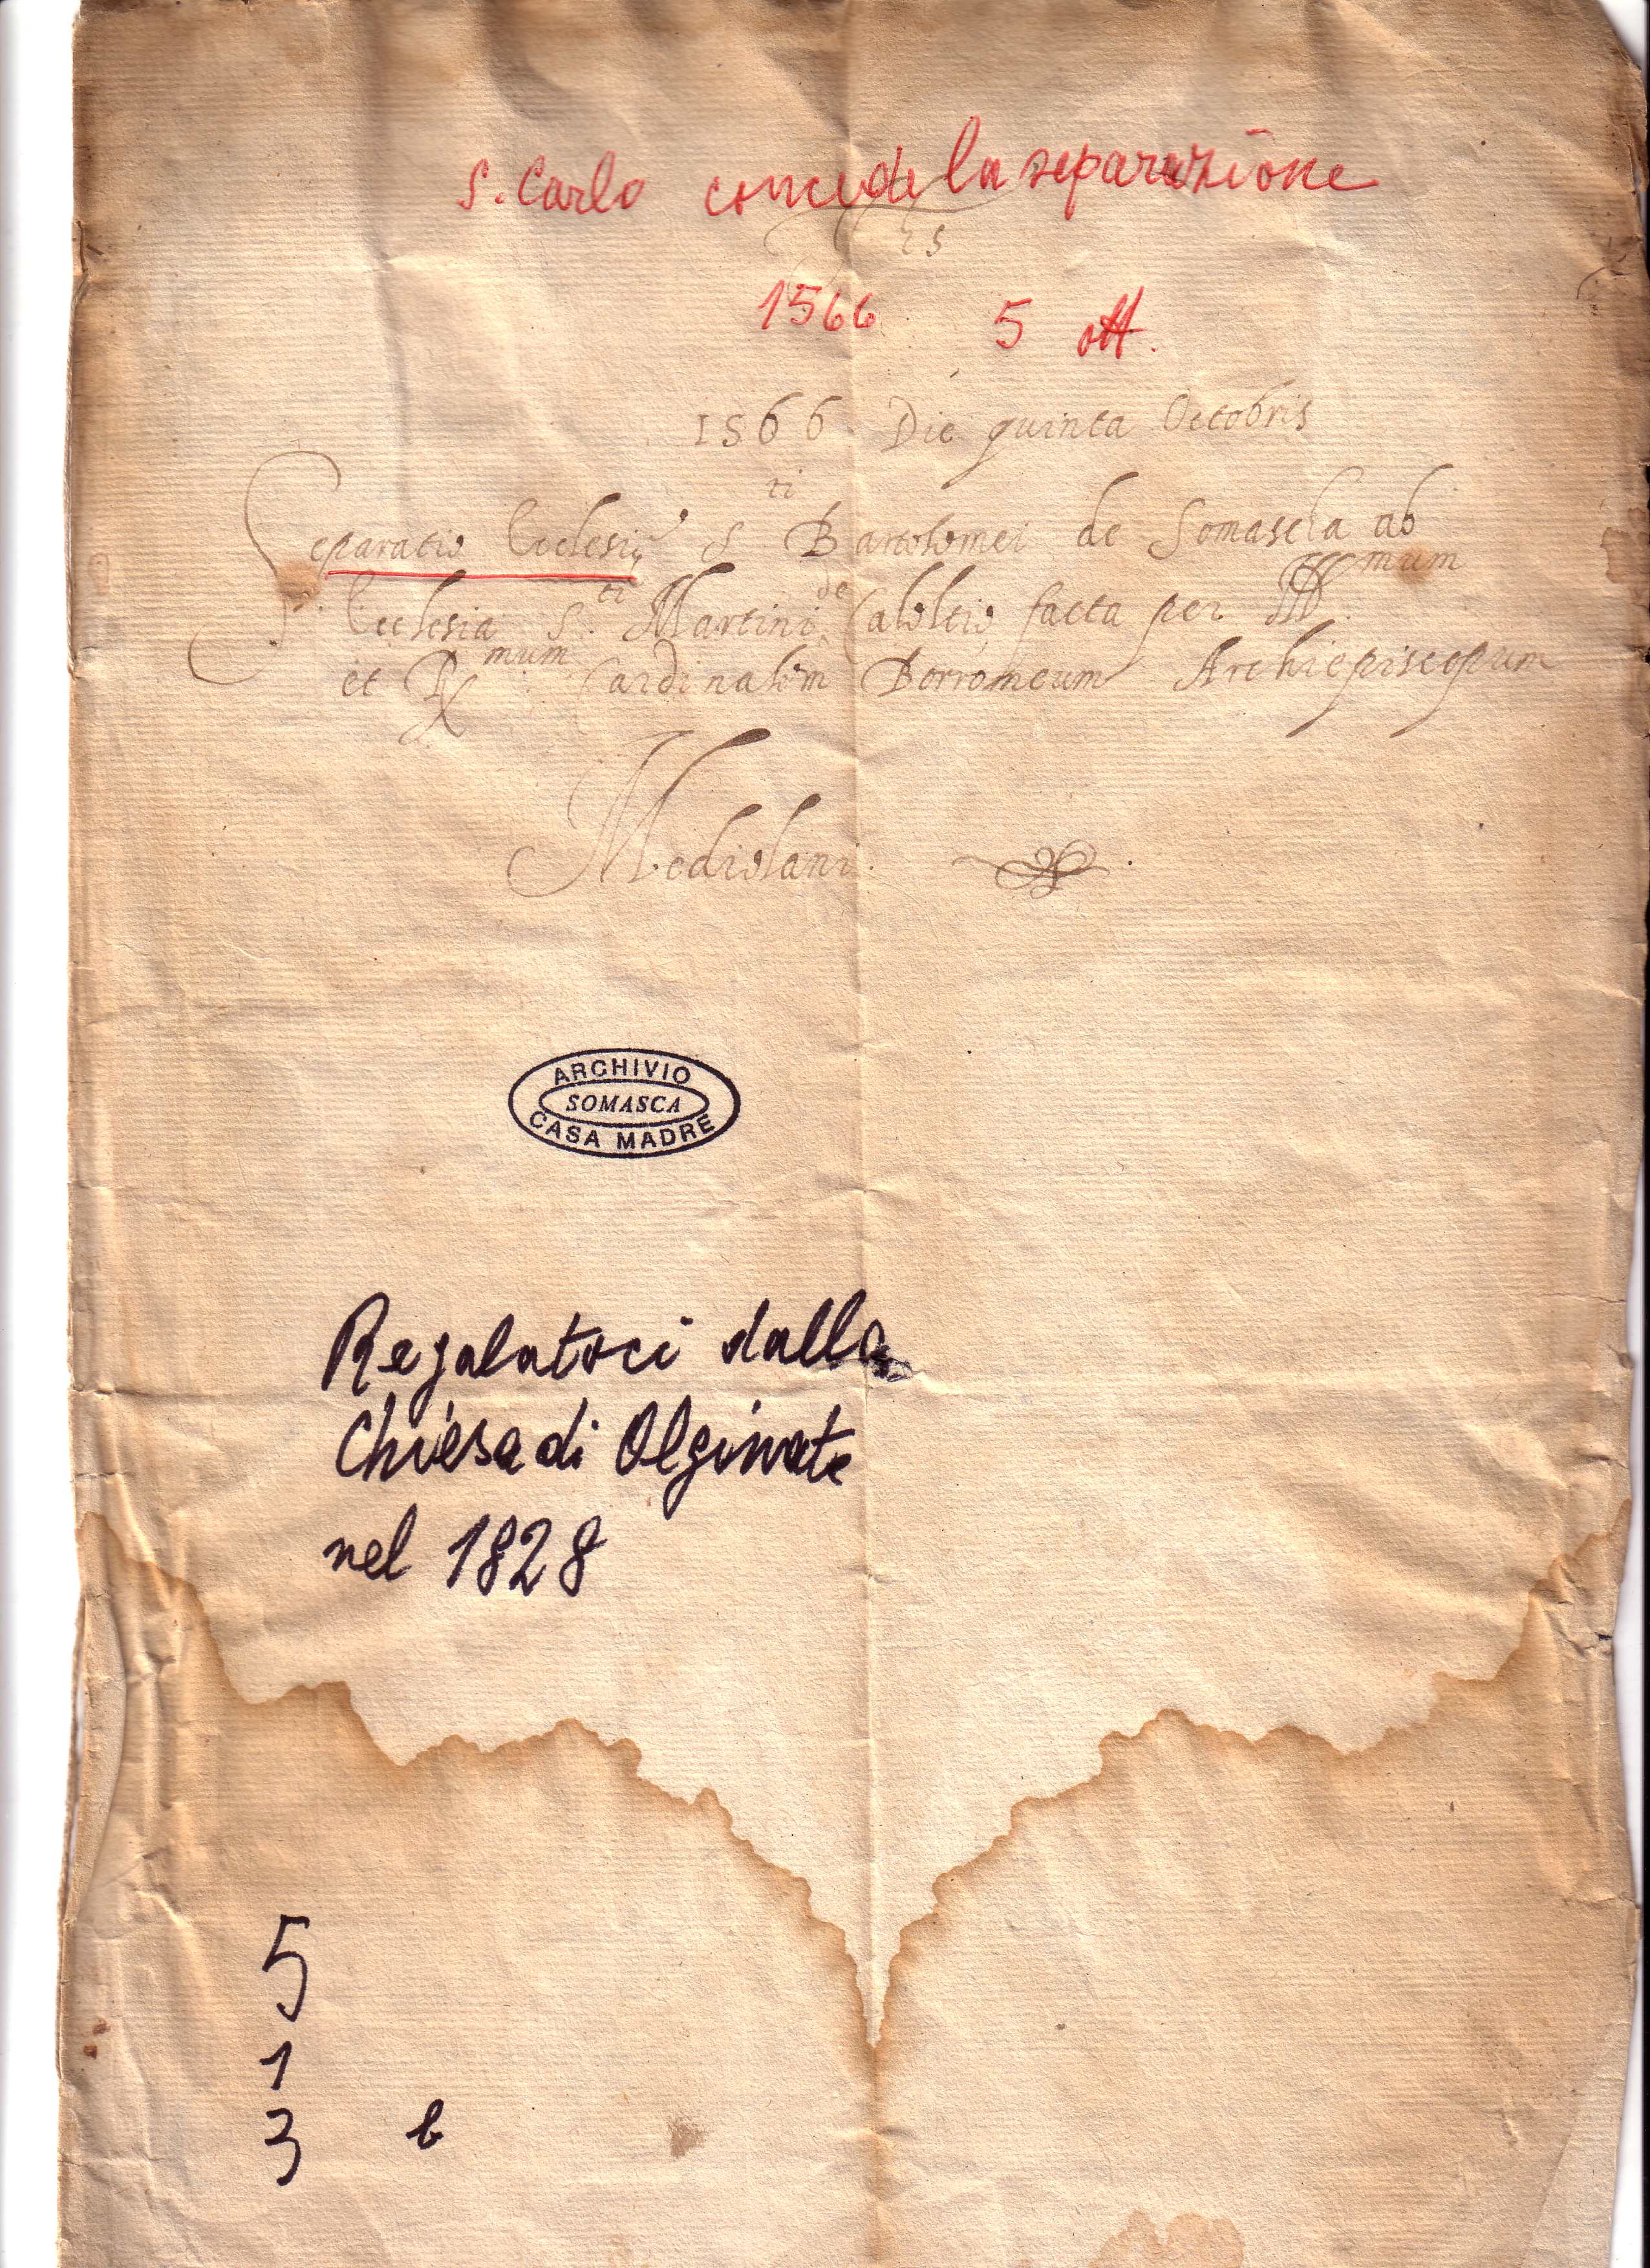 S. Carlo concede la separazione
1566 5 ott.
1566 Die quinta Octobris
Separatio Ecclesię Sti Bartolomei de Somascha ab
Ecclesia Sti Martini de Caloltio facta per Illmum
et Rmum Cardinalem Borromeum Archiepiscopum
Mediolani.
ARCHIVIO
SOMASCA
CASA MADRE
Regalatoci dalla
Chiesa di Olginate
nel 1828
5
1
3 b